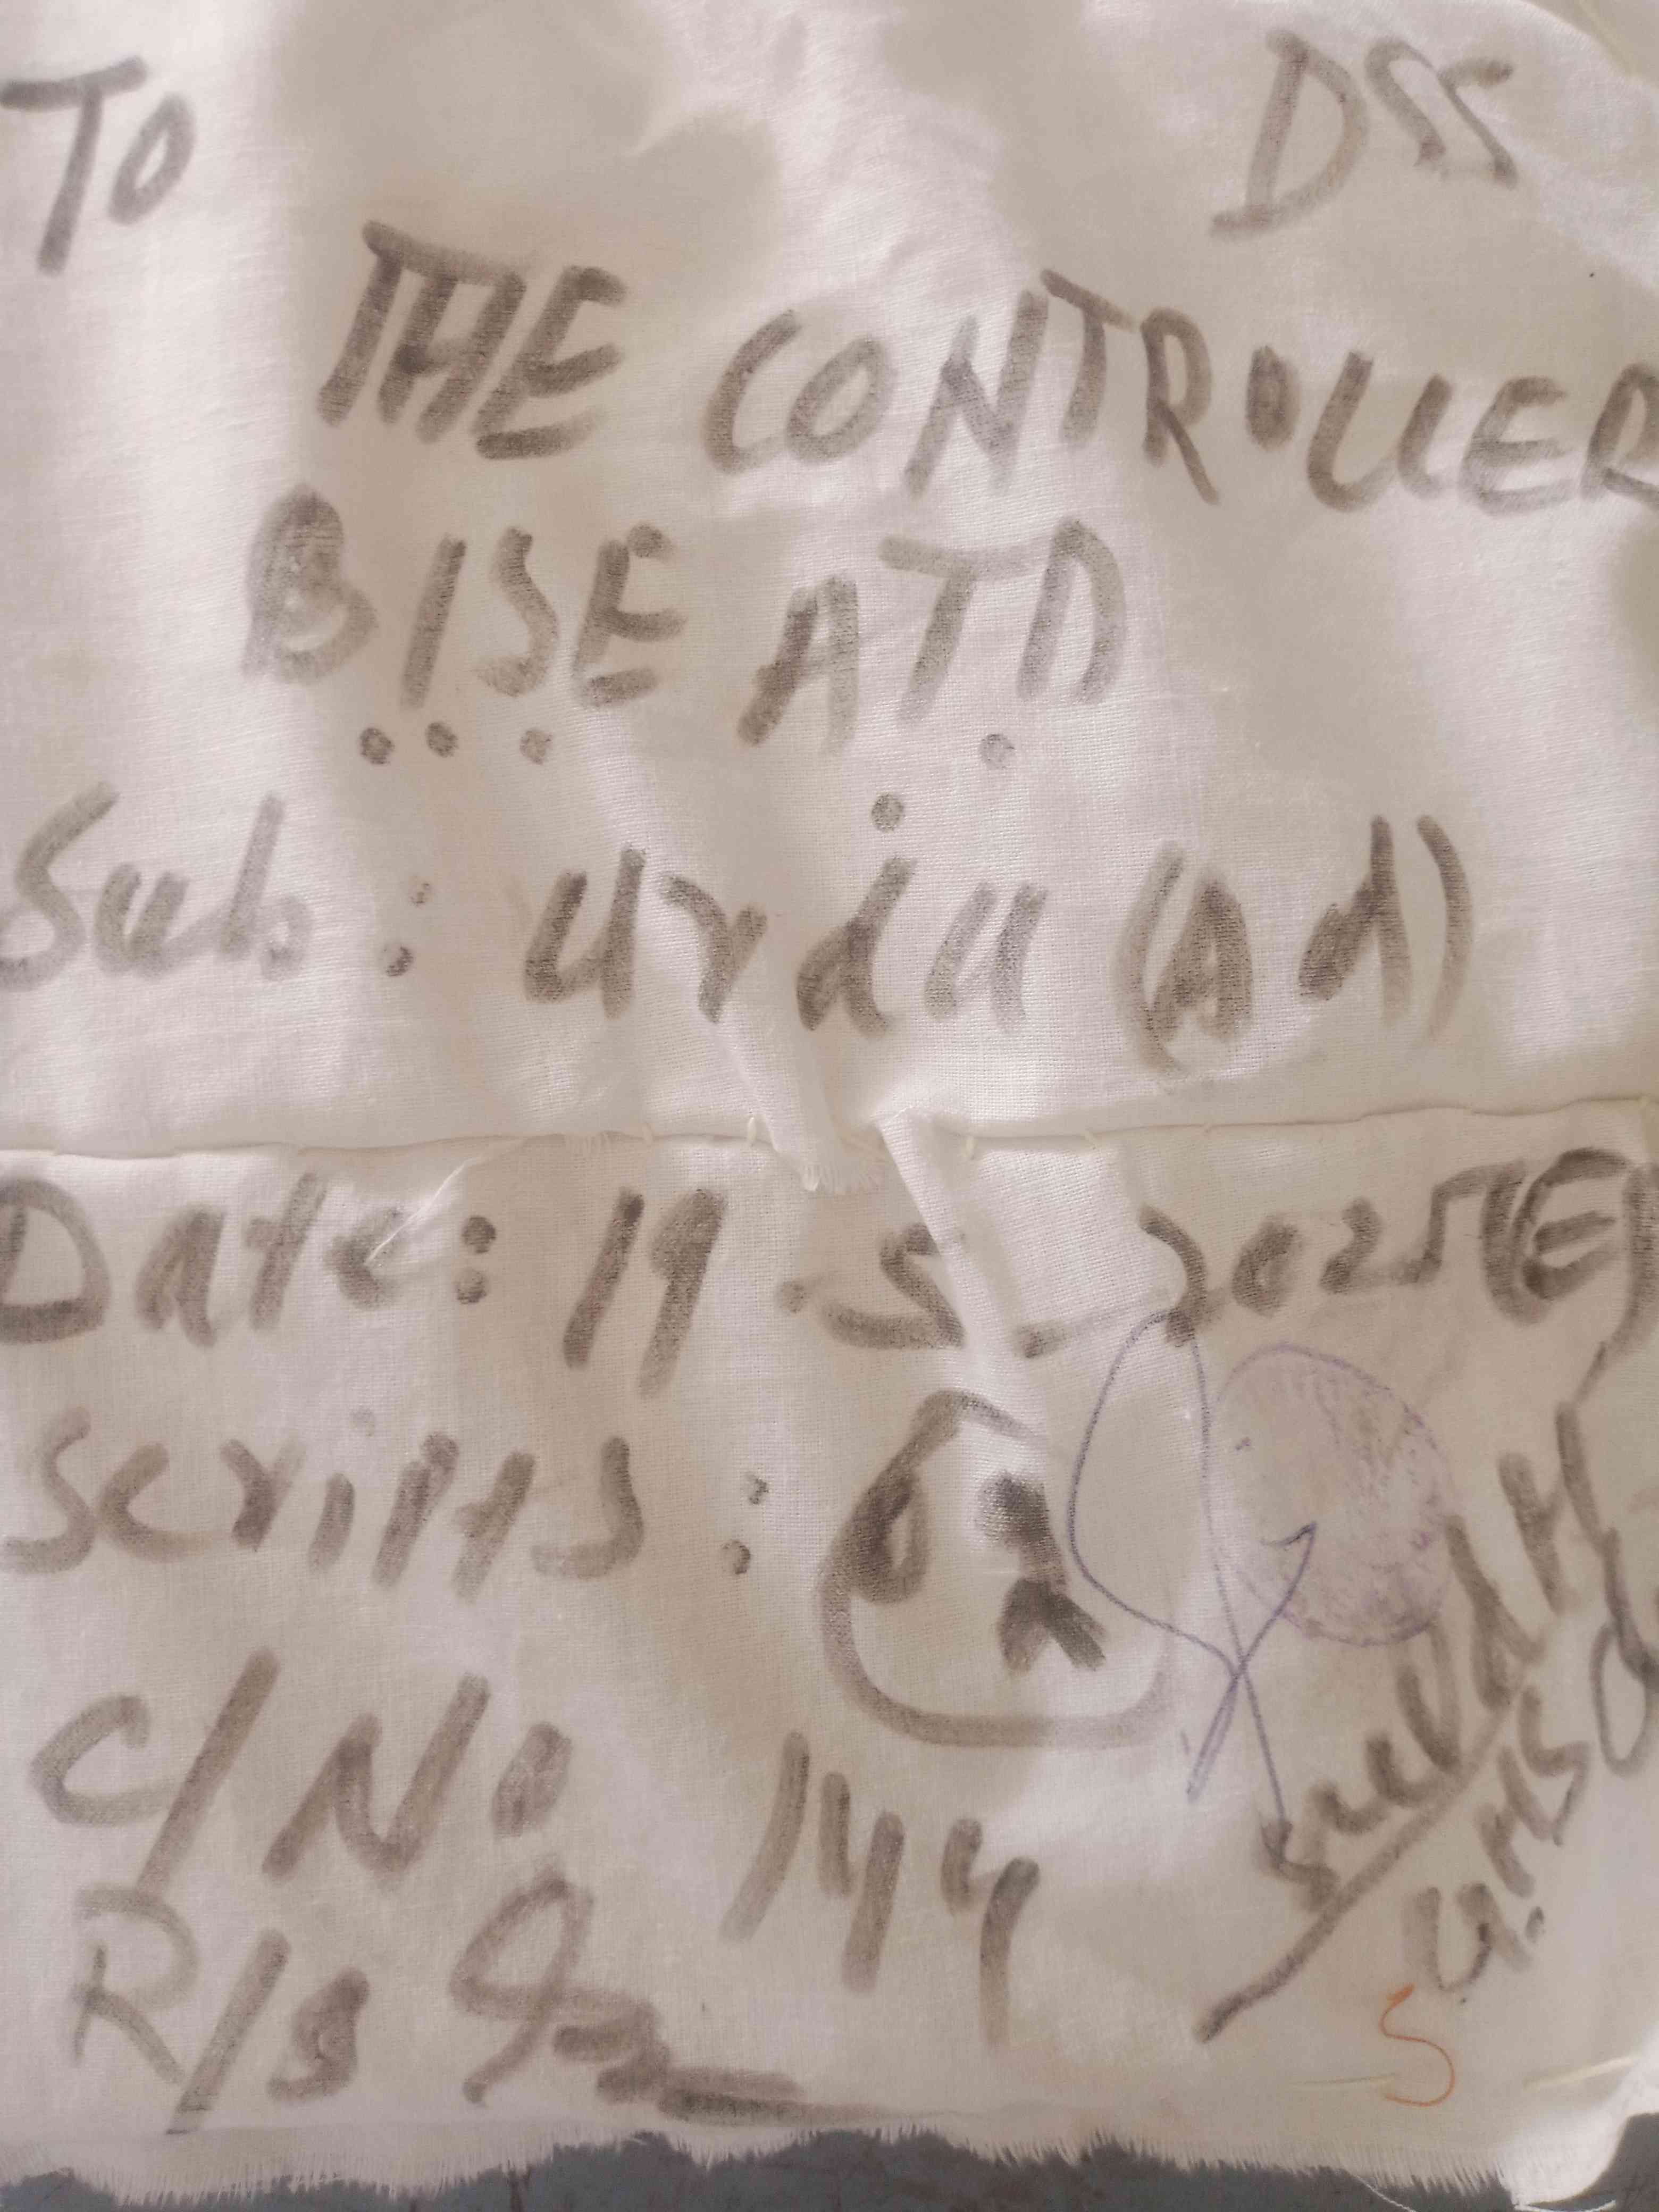 To DSS
THE CONTROLLER
BISE ATD
Sub: Urdu (Ad)
Date: 19.5.2025(E)
scripts:
C/No 144
R/s
5